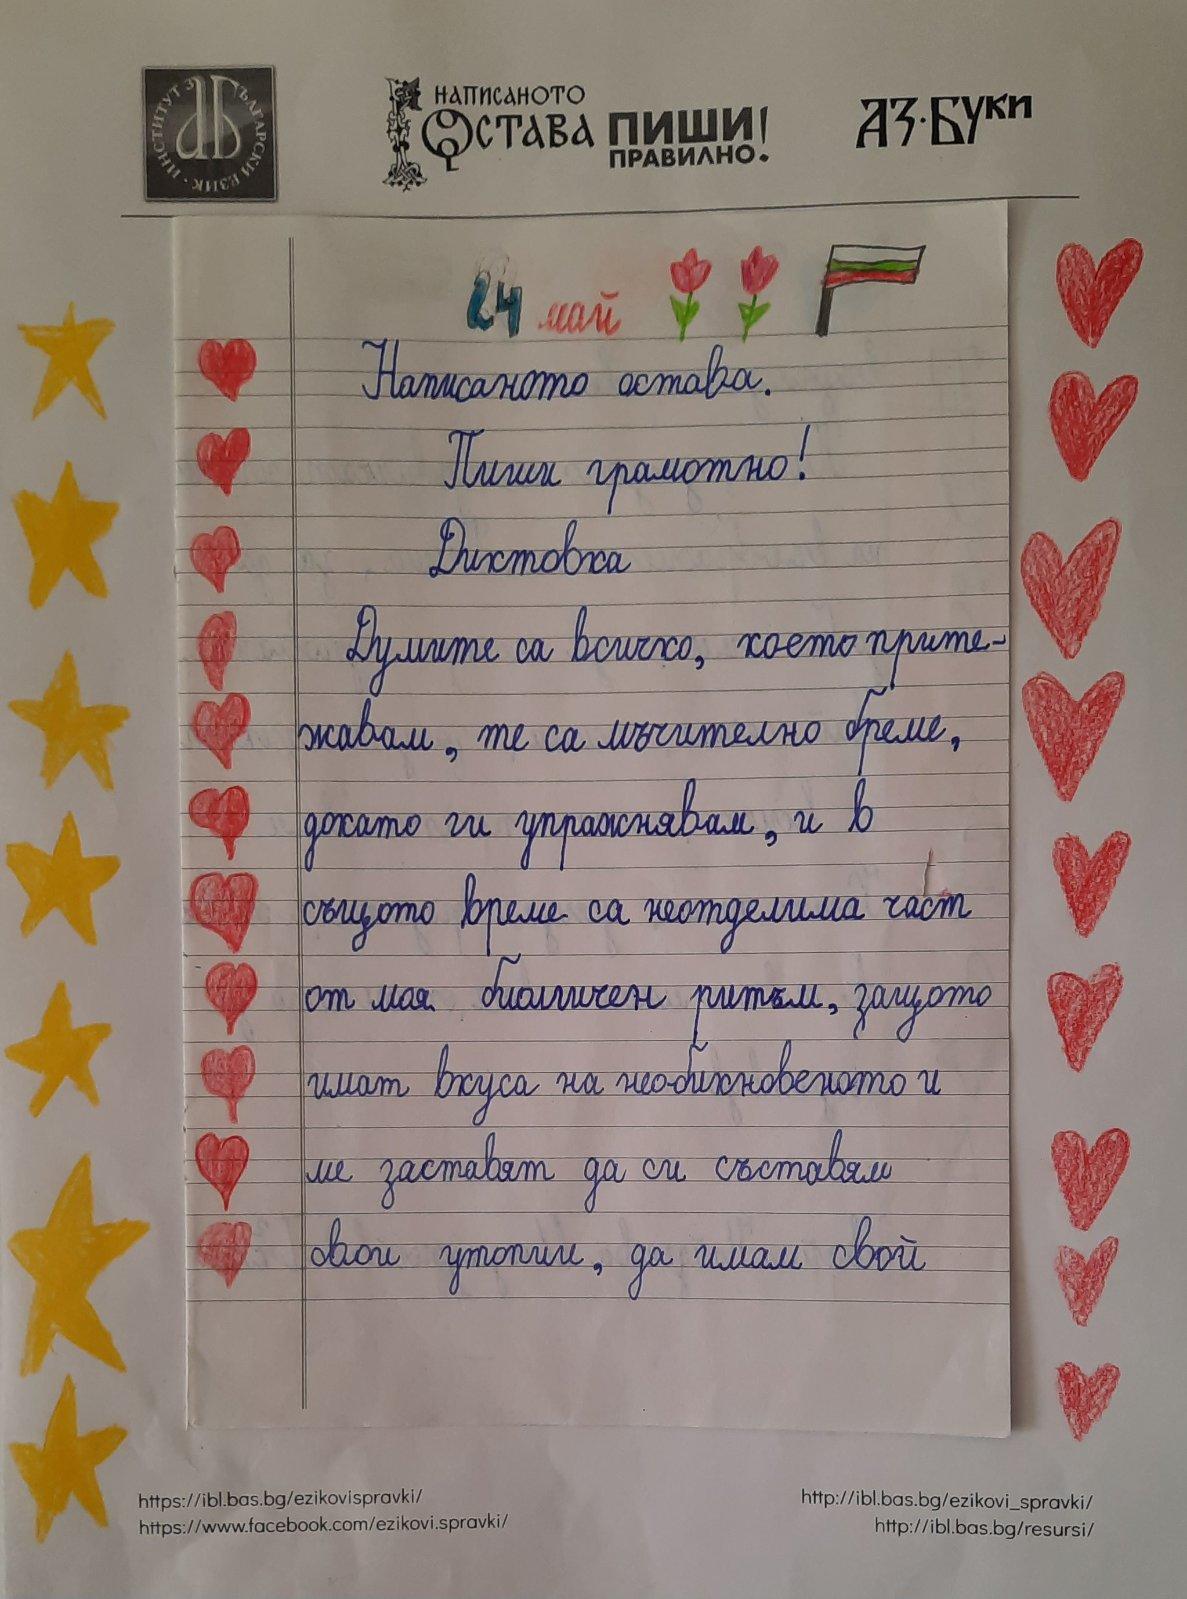 ИНСТИТУТ ЗА БЪЛГАРСКИ ЕЗИК
НАПИСАНОТО
ОСТАВА
ПИШИ
ПРАВИЛНО!
АЗ·БУКИ
24 май
Написаното остава.
Пиши грамотно!
Диктовка
Думите са всичко, което прите-
жавам, те са мъчително бреме,
докато ги упражнявам, и в
същото време са неотделима част
от моя биолгичен ритъм, защото
имат вкуса на необикновеното и
ме заставят да си съставям
свои утопии, да имам свой
https://ibl.bas.bg/ezikovispravki/
https://www.facebook.com/ezikovi.spravki/
http://ibl.bas.bg/ezikovi_spravki/
http://ibl.bas.bg/resursi/